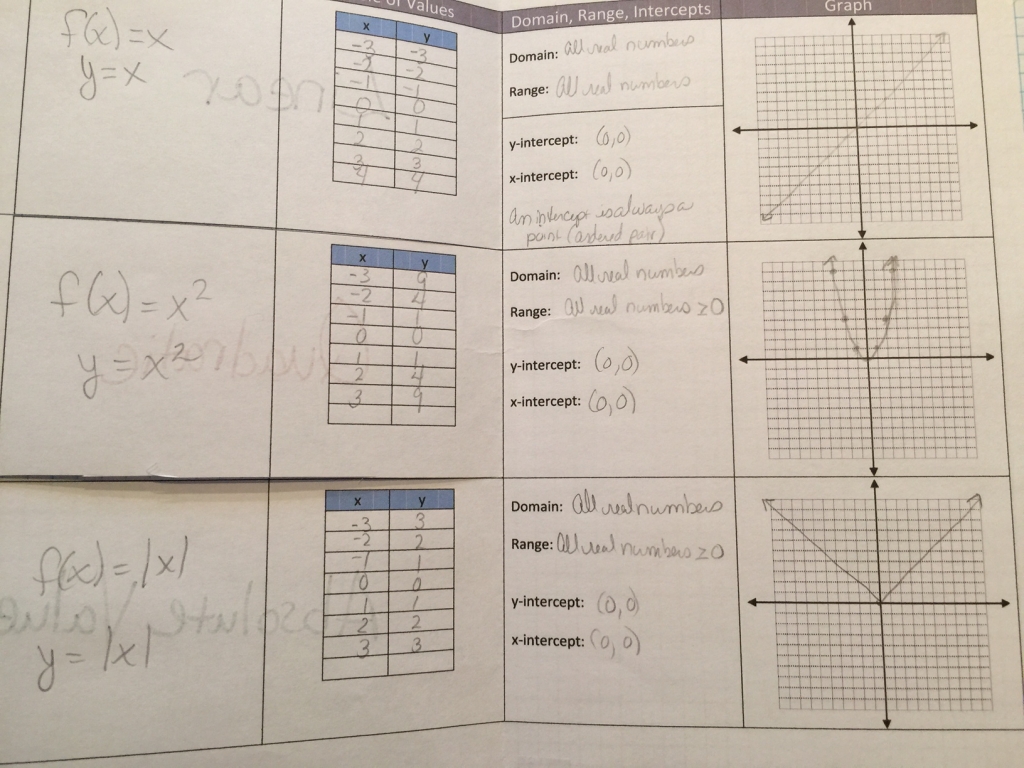 of Values
Domain, Range, Intercepts
Graph
f(x) = x
y = x
x y
-3 -3
-2 -2
-1 -1
0 0
1 1
2 2
3 3
4 4
Domain: All real numbers
Range: All real numbers
y-intercept: (0,0)
x-intercept: (0,0)
An intercept is always a
point (ordered pair)
f(x) = x²
y = x²
x y
-3 9
-2 4
-1 1
0 0
1 1
2 4
3 9
Domain: All real numbers
Range: All real numbers ≥0
y-intercept: (0,0)
x-intercept: (0,0)
f(x) = |x|
y = |x|
x y
-3 3
-2 2
-1 1
0 0
1 1
2 2
3 3
Domain: All real numbers
Range: All real numbers ≥0
y-intercept: (0,0)
x-intercept: (0,0)
Linear
Quadratic
Absolute Value